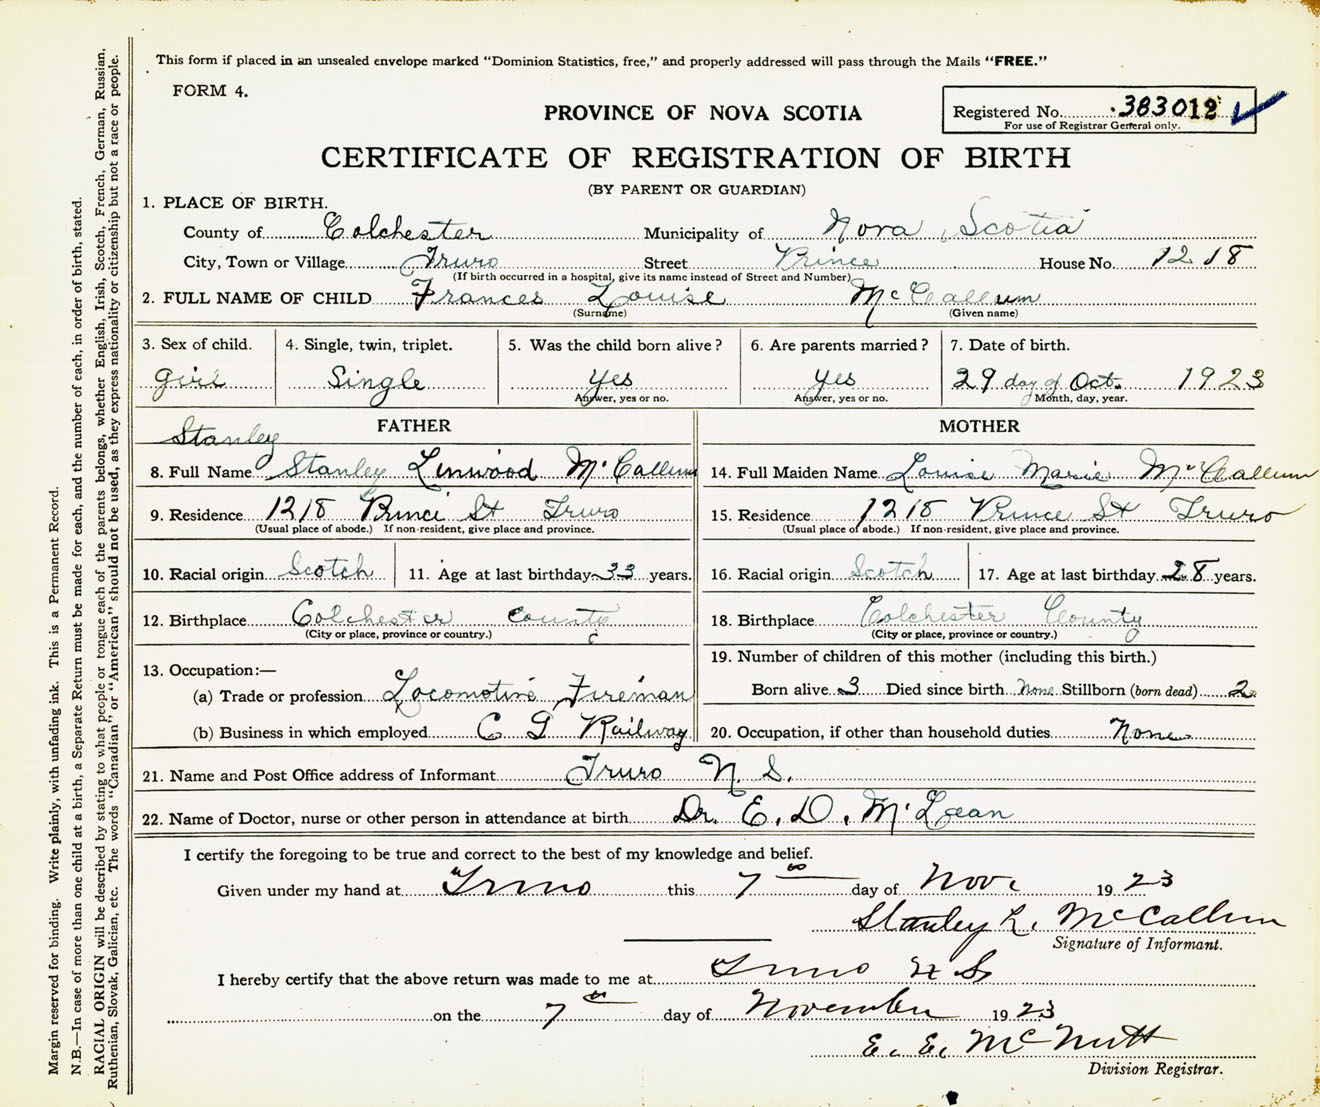 This form if placed in an unsealed envelope marked "Dominion Statistics, free," and properly addressed will pass through the Mails "FREE."
FORM 4.
PROVINCE OF NOVA SCOTIA
Registered No. 383012
For use of Registrar General only.
CERTIFICATE OF REGISTRATION OF BIRTH
(BY PARENT OR GUARDIAN)
1. PLACE OF BIRTH.
County of Colchester Municipality of Nova Scotia
City, Town or Village Truro Street Prince House No. 1218
(If birth occurred in a hospital, give its name instead of Street and Number)
2. FULL NAME OF CHILD Frances Louise McCallum
(Surname) (Given name)
3. Sex of child. 4. Single, twin, triplet. 5. Was the child born alive? 6. Are parents married? 7. Date of birth.
girl Single yes yes 29 day of Oct. 1923
Answer, yes or no. Answer, yes or no. Month, day, year.
FATHER MOTHER
Stanley
8. Full Name Stanley Linwood McCallum 14. Full Maiden Name Louise Marie McCallum
9. Residence 1218 Prince St Truro 15. Residence 1218 Prince St Truro
(Usual place of abode.) If non-resident, give place and province. (Usual place of abode.) If non-resident, give place and province.
10. Racial origin Scotch 11. Age at last birthday 33 years. 16. Racial origin Scotch 17. Age at last birthday 28 years.
12. Birthplace Colchester County 18. Birthplace Colchester County
(City or place, province or country.) (City or place, province or country.)
19. Number of children of this mother (including this birth.)
13. Occupation:—
(a) Trade or profession Locomotive Fireman Born alive 3 Died since birth None Stillborn (born dead) 2
(b) Business in which employed C G Railway 20. Occupation, if other than household duties None
21. Name and Post Office address of Informant Truro N. S.
22. Name of Doctor, nurse or other person in attendance at birth Dr. E. D. McLean
I certify the foregoing to be true and correct to the best of my knowledge and belief.
Given under my hand at Truro this 7th day of Nov. 1923
Stanley L. McCallum
Signature of Informant.
I hereby certify that the above return was made to me at Truro N S
on the 7th day of November 1923
E. E. McNutt
Division Registrar.
Margin reserved for binding. Write plainly, with unfading ink. This is a Permanent Record.
N.B.—In case of more than one child at a birth, a Separate Return must be made for each, and the number of each, in order of birth, stated.
RACIAL ORIGIN will be described by stating to what people or tongue each of the parents belongs, whether English, Irish, Scotch, French, German, Russian,
Ruthenian, Slovak, Galician, etc. The words "Canadian" or "American" should not be used, as they express nationality or citizenship but not a race or people.